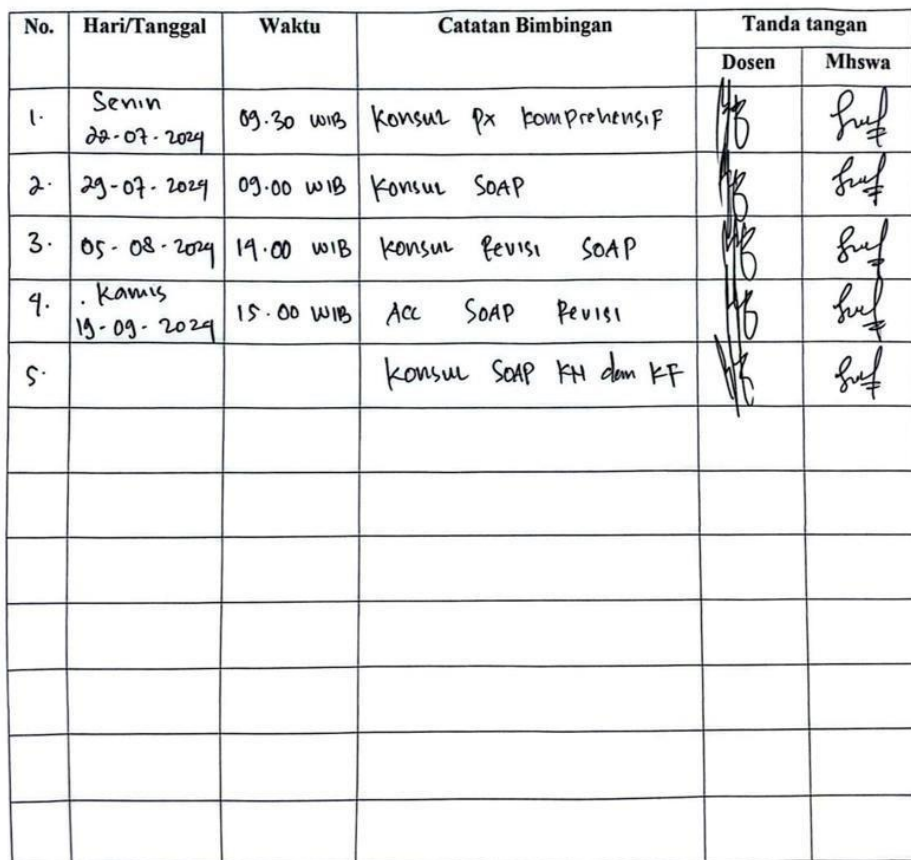 No. Hari/Tanggal Waktu Catatan Bimbingan Tanda tangan
Dosen Mhswa
1. Senin
22-07-2024 09.30 WIB Konsul Px Komprehensif
2. 29-07-2024 09.00 WIB Konsul SOAP
3. 05-08-2024 14.00 WIB Konsul Revisi SOAP
4. . Kamis
19-09-2024 15.00 WIB Acc SOAP Revisi
5. Konsul SOAP KH dan KF